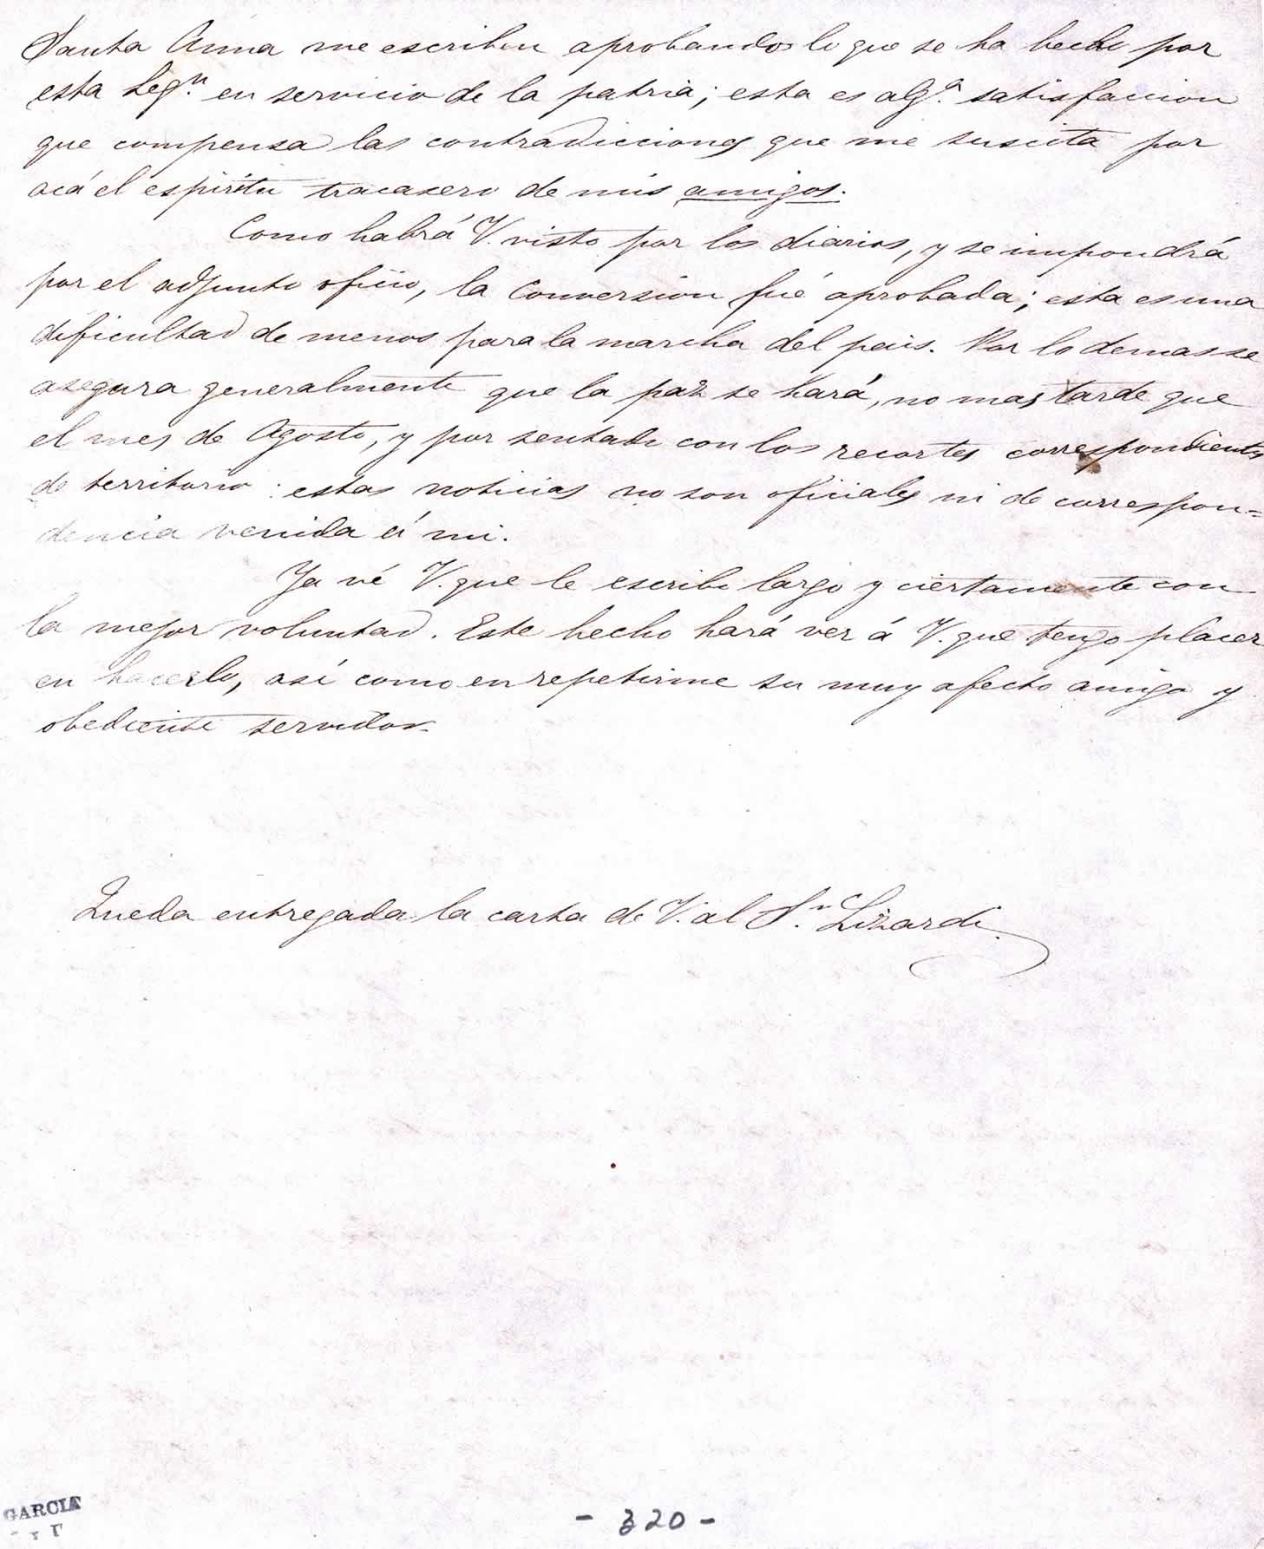 Santa Anna me escriben aprobando lo que se ha hecho por
esta Legn. en servicio de la patria; esta es alga. satisfaccion
que compensa las contradicciones que me suscita por
acá el espiritu tracasero de mis amigos.
Como habrá V. visto por los diarios, y se impondrá
por el adjunto oficio, la Conversion fué aprobada; esta es una
dificultad de menos para la marcha del pais. Por lo demas se
asegura generalmente que la paz se hará, no mas tarde que
el mes de Agosto, y por sentado con los recortes correspondientes
de territorio: estas noticias no son oficiales ni de correspon=
dencia venida á mi.
Ya vé V. que le escribo largo y ciertamente con
la mejor voluntad. Este hecho hará ver á V. que tengo placer
en hacerlo, así como en repetirme su muy afecto amigo y
obediente servidor.
Queda entregada la carta de V. al Sr. Lizardi.
GARCIA
- 320 -